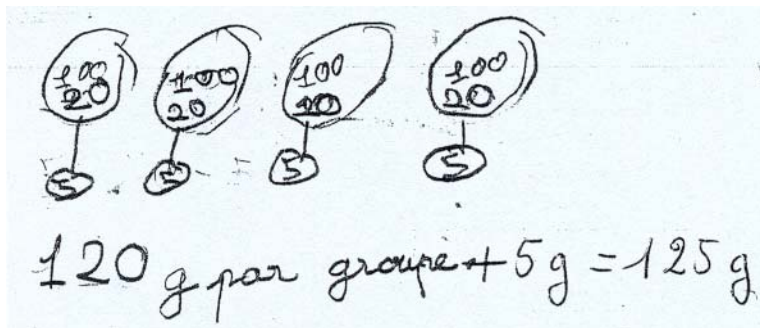 100 100 100 100
20 20 20 20
5 5 5 5
120 g par groupe + 5 g = 125 g